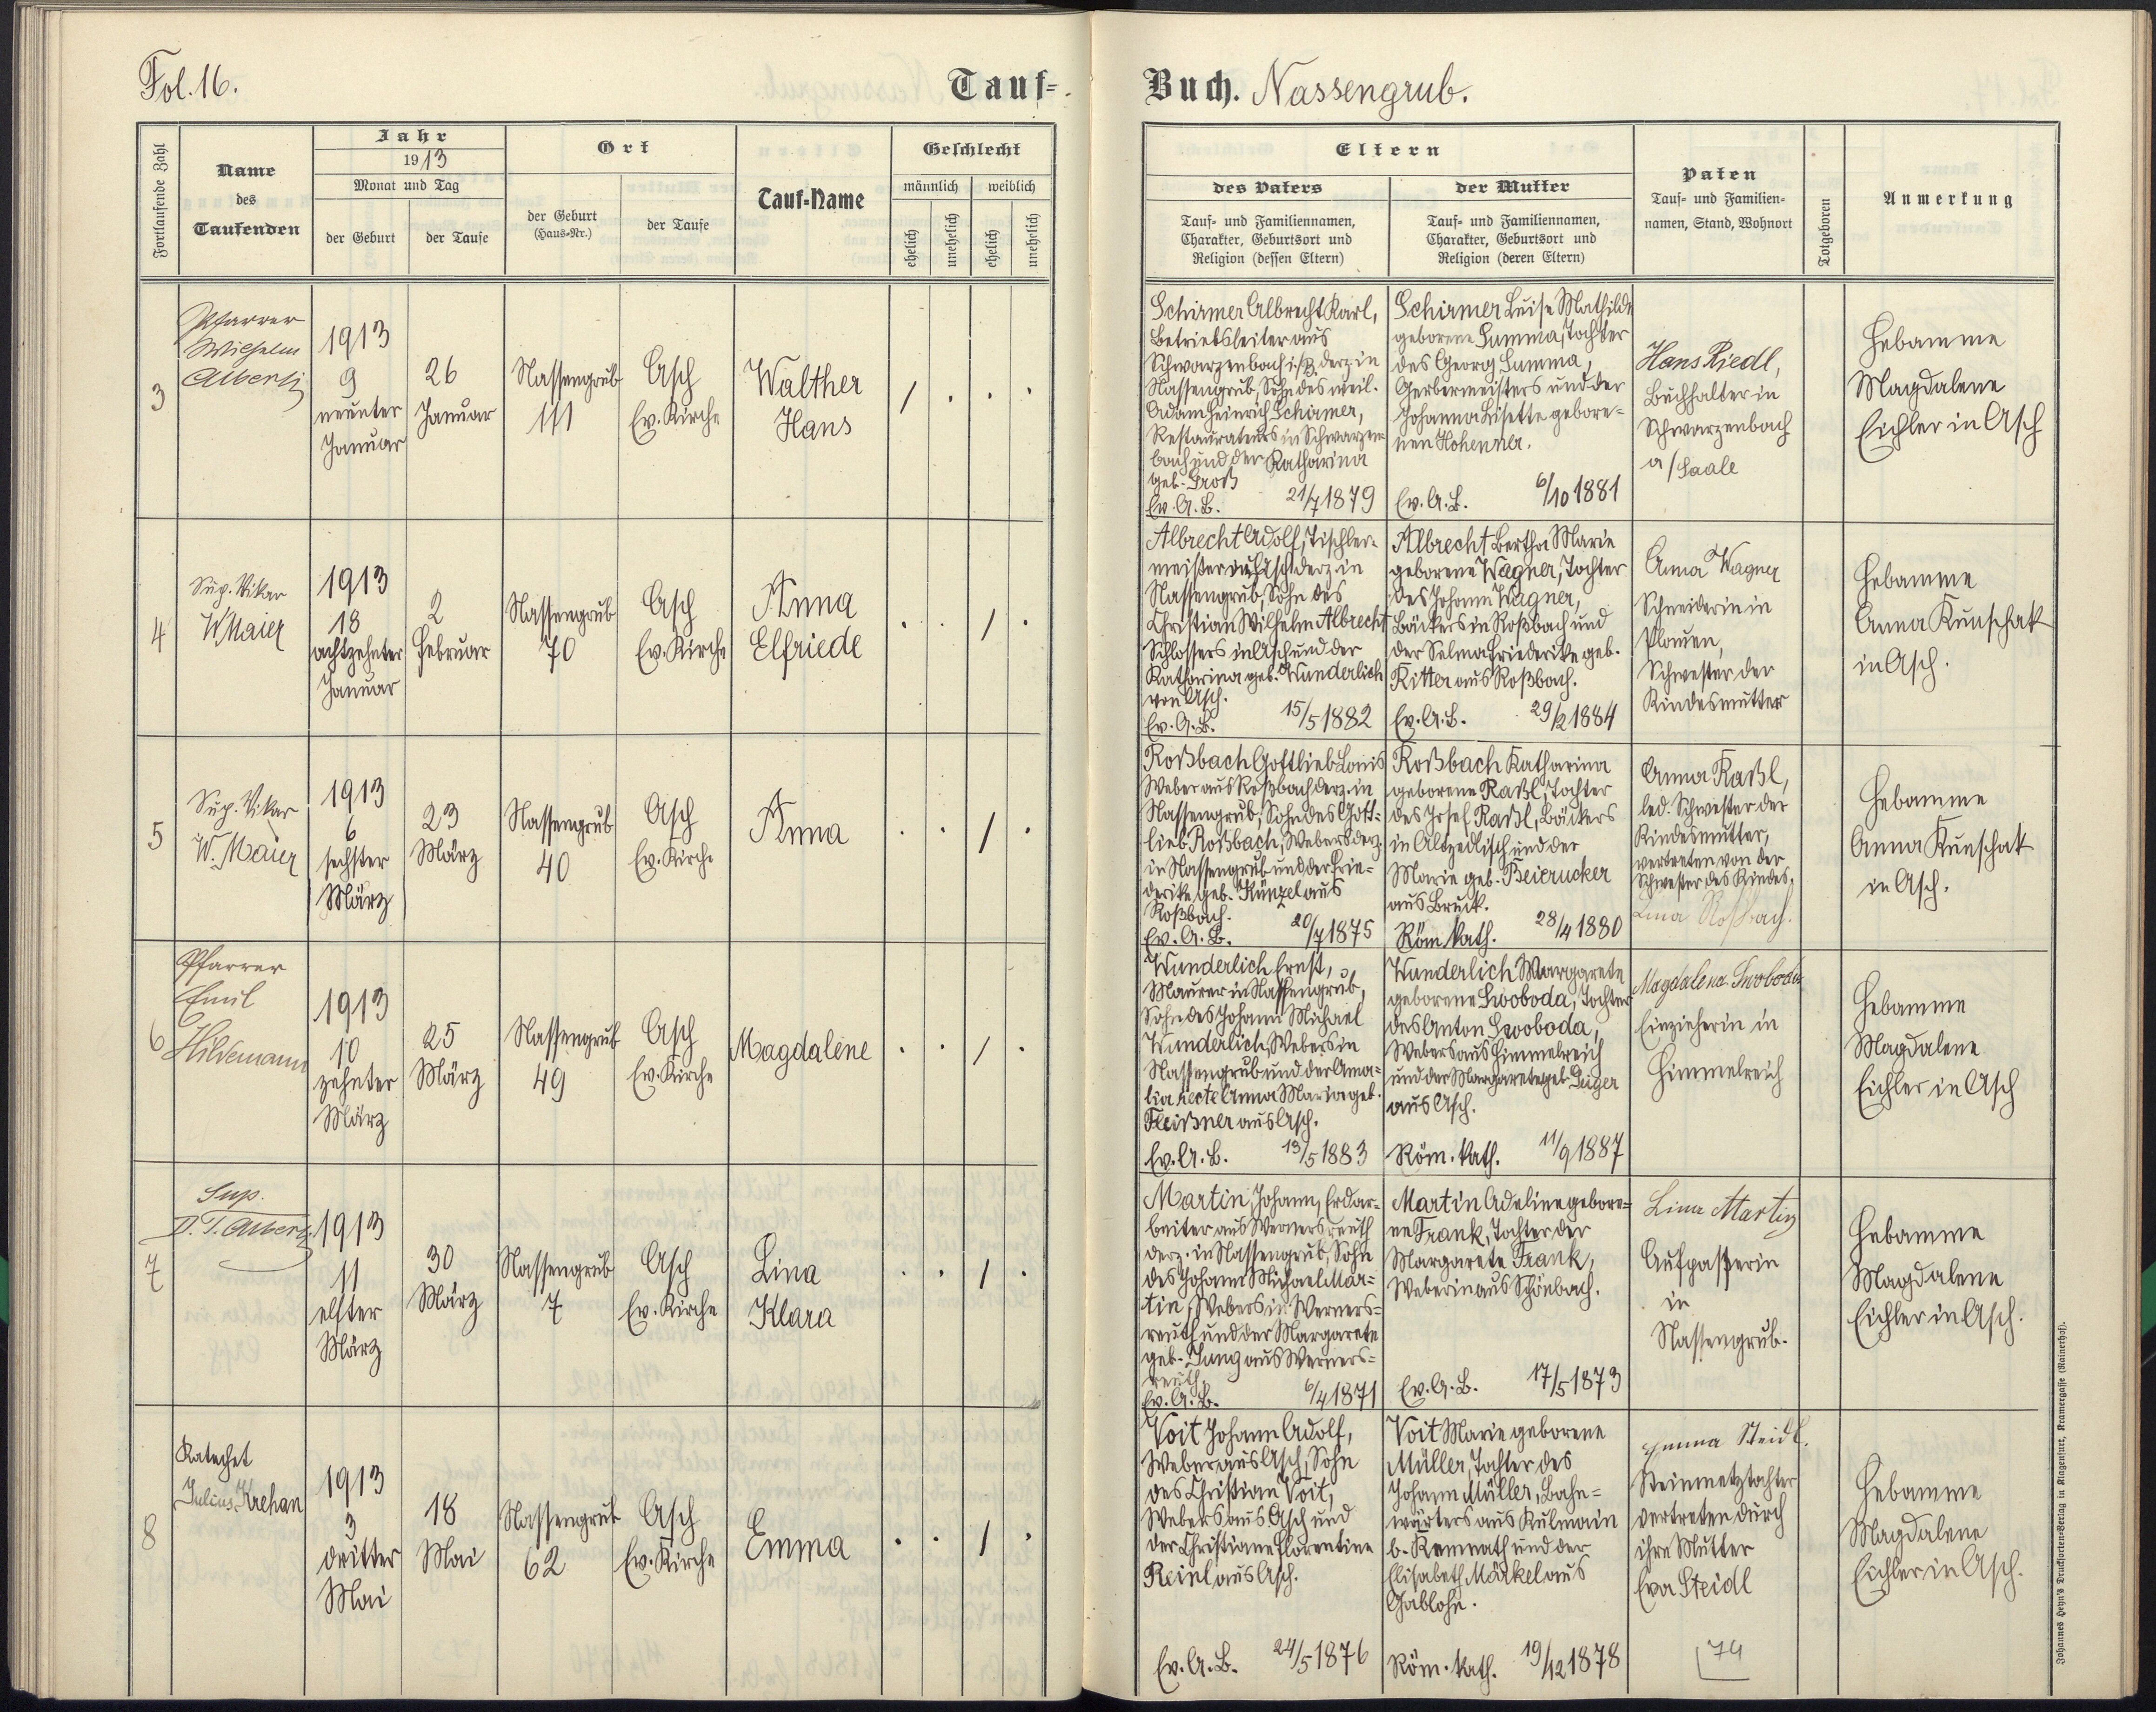 Fol. 16.
Tauf-
Buch. Nassengrub.
Fortlaufende Zahl
Name
des
Taufenden
Jahr
1913
Monat und Tag
der Geburt
der Taufe
Ort
der Geburt
(Haus-Nr.)
der Taufe
Tauf-Name
Geschlecht
männlich
weiblich
ehelich
unehelich
ehelich
unehelich
Eltern
des Vaters
Tauf- und Familiennamen,
Charakter, Geburtsort und
Religion (dessen Eltern)
der Mutter
Tauf- und Familiennamen,
Charakter, Geburtsort und
Religion (deren Eltern)
Paten
Tauf- und Familien-
namen, Stand, Wohnort
Totgeboren
Anmerkung
3
Pfarrer
Wilhelm
Alberti
1913
9
neunter
Januar
26
Januar
Nassengrub
111
Asch
Ev. Kirche
Walther
Hans
/ . . .
Schirmer Albrecht Karl,
Betriebsleiter aus
Schwarzenbach derz. in
Nassengrub, Sohn des weil.
Adam Heinrich Schirmer,
Restaurateurs in Schwarzen-
bach und der Katharina
geb.
Ev. A. B. 21/7 1879
Schirmer Luise Mathilde
geborene Summa, Tochter
des Georg Summa,
Gerbermeisters und der
Johanna Lisette gebore-
nen Hohenner.
Ev. A. B. 6/10 1881
Hans Riedl,
Buchhalter in
Schwarzenbach
a/Saale
Hebamme
Magdalene
Eichler in Asch
4
Sup. Vikar
W Maier
1913
18
achtzehnter
Januar
2
Februar
Nassengrub
70
Asch
Ev. Kirche
Anna
Elfriede
. . / .
Albrecht Adolf, Tischler-
meister aus Asch derz. in
Nassengrub, Sohn des
Christian Wilhelm Albrecht
Schlossers in Asch und der
Katharina geb. Wunderlich
von Asch.
Ev. A. B. 15/5 1882
Albrecht Bertha Marie
geborene Wagner, Tochter
des Johann Wagner,
Bäckers in Roßbach und
der Selma Friederike geb.
Ritter aus Roßbach.
Ev. A. B. 29/2 1884
Anna Wagner
Schneiderin in
Plauen,
Schwester der
Kindesmutter
Hebamme
Anna Kunschak
in Asch.
5
Sup. Vikar
W. Maier
1913
6
sechster
März
23
März
Nassengrub
40
Asch
Ev. Kirche
Anna
. . / .
Roßbach Gottlieb Louis
Weber aus Roßbach derz. in
Nassengrub, Sohn des Gott-
lieb Roßbach, Webers derz.
in Nassengrub und der Frie-
derike geb. Künzel aus
Roßbach.
Ev. A. B. 20/7 1875
Roßbach Katharina
geborene Raßl, Tochter
des Josef Raßl, Bäckers
in Altzedlisch und der
Marie geb. Beierucker
aus Bruck.
Röm. kath. 28/4 1880
Anna Raßl,
led. Schwester der
Kindesmutter,
vertreten von der
Schwester des Kindes.
Lina Roßbach.
Hebamme
Anna Kunschak
in Asch.
6
Pfarrer
Emil
Hildemann
1913
10
zehnter
März
25
März
Nassengrub
49
Asch
Ev. Kirche
Magdalene
. . / .
Wunderlich Ernst,
Maurer in Nassengrub,
Sohn des Johann Michael
Wunderlich, Webers in
Nassengrub und der Ama-
lia recte Anna Maria geb.
Fleißner aus Asch.
Ev. A. B. 13/5 1883
Wunderlich Margarete
geborene Swoboda, Tochter
des Anton Swoboda,
Webers aus Himmelreich
und der Margarete geb.
aus Asch.
Röm. kath. 11/9 1887
Magdalena Swoboda
Einzieherin in
Himmelreich
Hebamme
Magdalene
Eichler in Asch
7
Sup.
D. T. Alberti
1913
11
elfter
März
30
März
Nassengrub
7
Asch
Ev. Kirche
Lina
Klara
. . / .
Martin Johann, Erdar-
beiter aus Wernersreuth
derz. in Nassengrub, Sohn
des Johann Michael Mar-
tin, Webers in Werners-
reuth und der Margarete
geb. Jung aus Werners-
reuth.
Ev. A. B. 6/4 1871
Martin Adeline gebore-
ne Frank, Tochter der
Margarete Frank,
Weberin aus Schönbach.
Ev. A. B. 17/5 1873
Lina Martin
Aufpasserin
in
Nassengrub.
Hebamme
Magdalene
Eichler in Asch.
8
Katechet
Julius Krehan
1913
3
dritter
Mai
18
Mai
Nassengrub
62
Asch
Ev. Kirche
Emma
. . / .
Voit Johann Adolf,
Weber aus Asch, Sohn
des Christian Voit,
Webers aus Asch und
der Christiane Florentine
Reinl aus Asch.
Ev. A. B. 24/5 1876
Voit Marie geborene
Müller, Tochter des
Johann Müller, Bahn-
wärters aus Kulmain
b. Kemnath und der
Elisabeth Märkel aus
Gablohn.
Röm. kath. 19/12 1878
Emma Steidl.
Steinmetztochter
vertreten durch
ihre Mutter
Eva Steidl
74
Hebamme
Magdalene
Eichler in Asch.
Johannes Heyn's Drucksorten-Verlag in Klagenfurt, Kramergasse (Rainerhof).